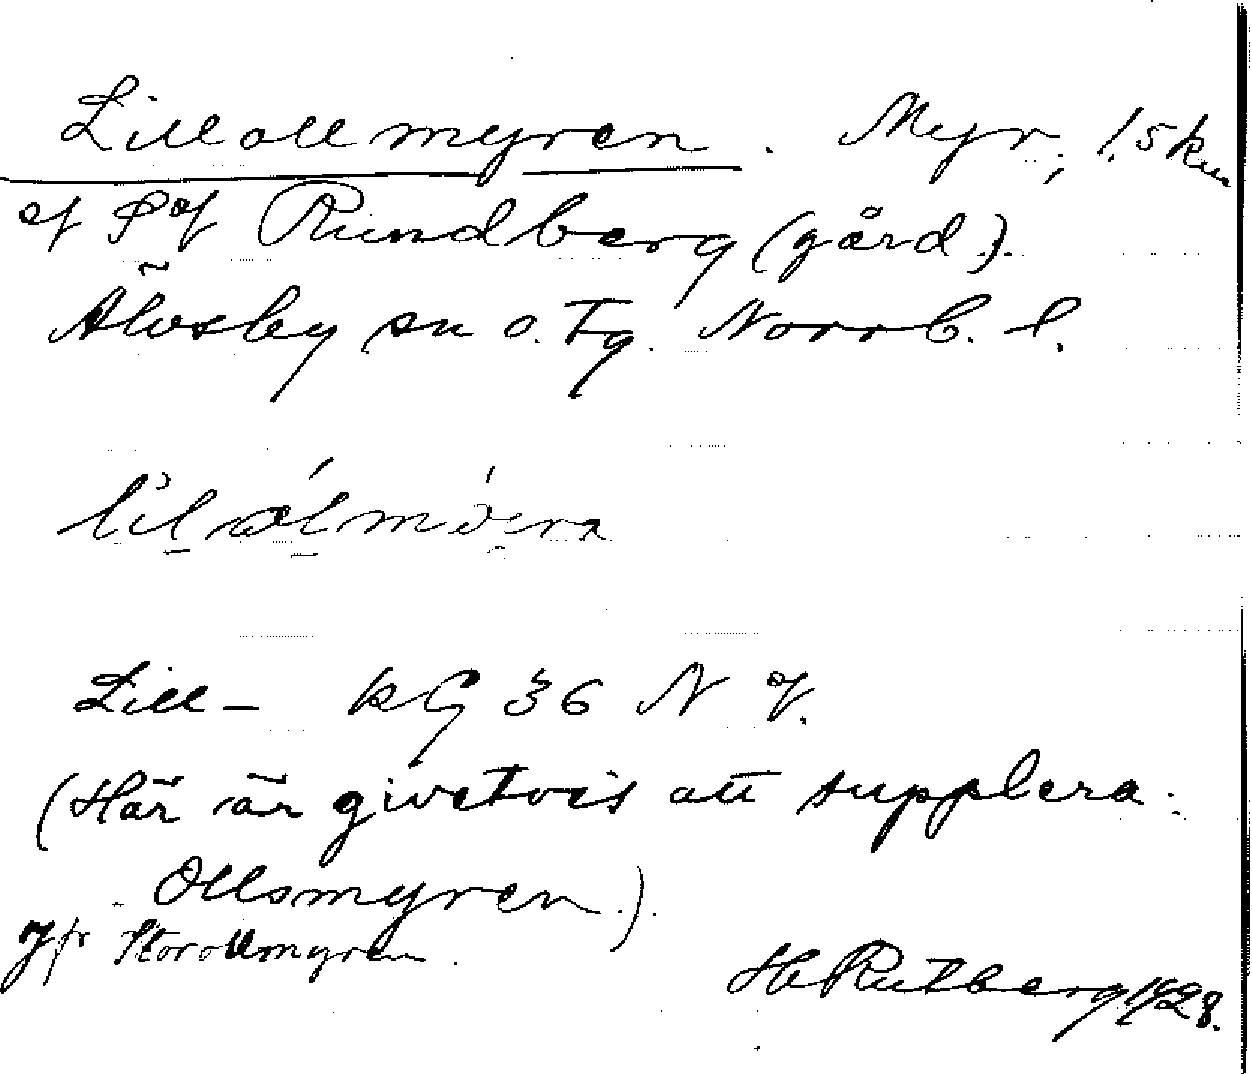 Lillollmyren. Myr, 1,5 km
Rundberg (gård).
Älvsby sn o. Tg. Norrb. l.
Lill- kG 36 N
(Här är givetvis att supplera:
Ollsmyren).
Jfr Storollmyren.
H Rutberg 1928.